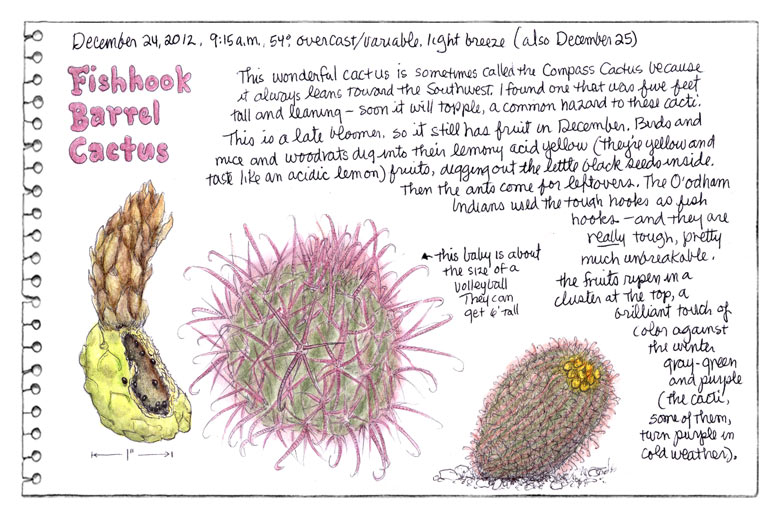 December 24, 2012, 9:15 a.m., 54°, overcast/variable, light breeze (also December 25)
Fishhook
Barrel
Cactus
This wonderful cactus is sometimes called the Compass Cactus because
it always leans toward the Southwest. I found one that was five feet
tall and leaning – soon it will topple, a common hazard to these cacti.
This is a late bloomer, so it still has fruit in December. Birds and
mice and woodrats dig into their lemony acid yellow (they're yellow and
taste like an acidic lemon) fruits, digging out the little black seeds inside.
Then the ants come for leftovers. The O'odham
Indians used the tough hooks as fish
hooks – and they are
really tough, pretty
much unbreakable.
this baby is about
the size of a
volleyball
They can
get 6' tall
the fruits ripen in a
cluster at the top, a
brilliant touch of
color against
the winter
gray-green
and purple
(the cacti,
some of them,
turn purple in
cold weather).
1"